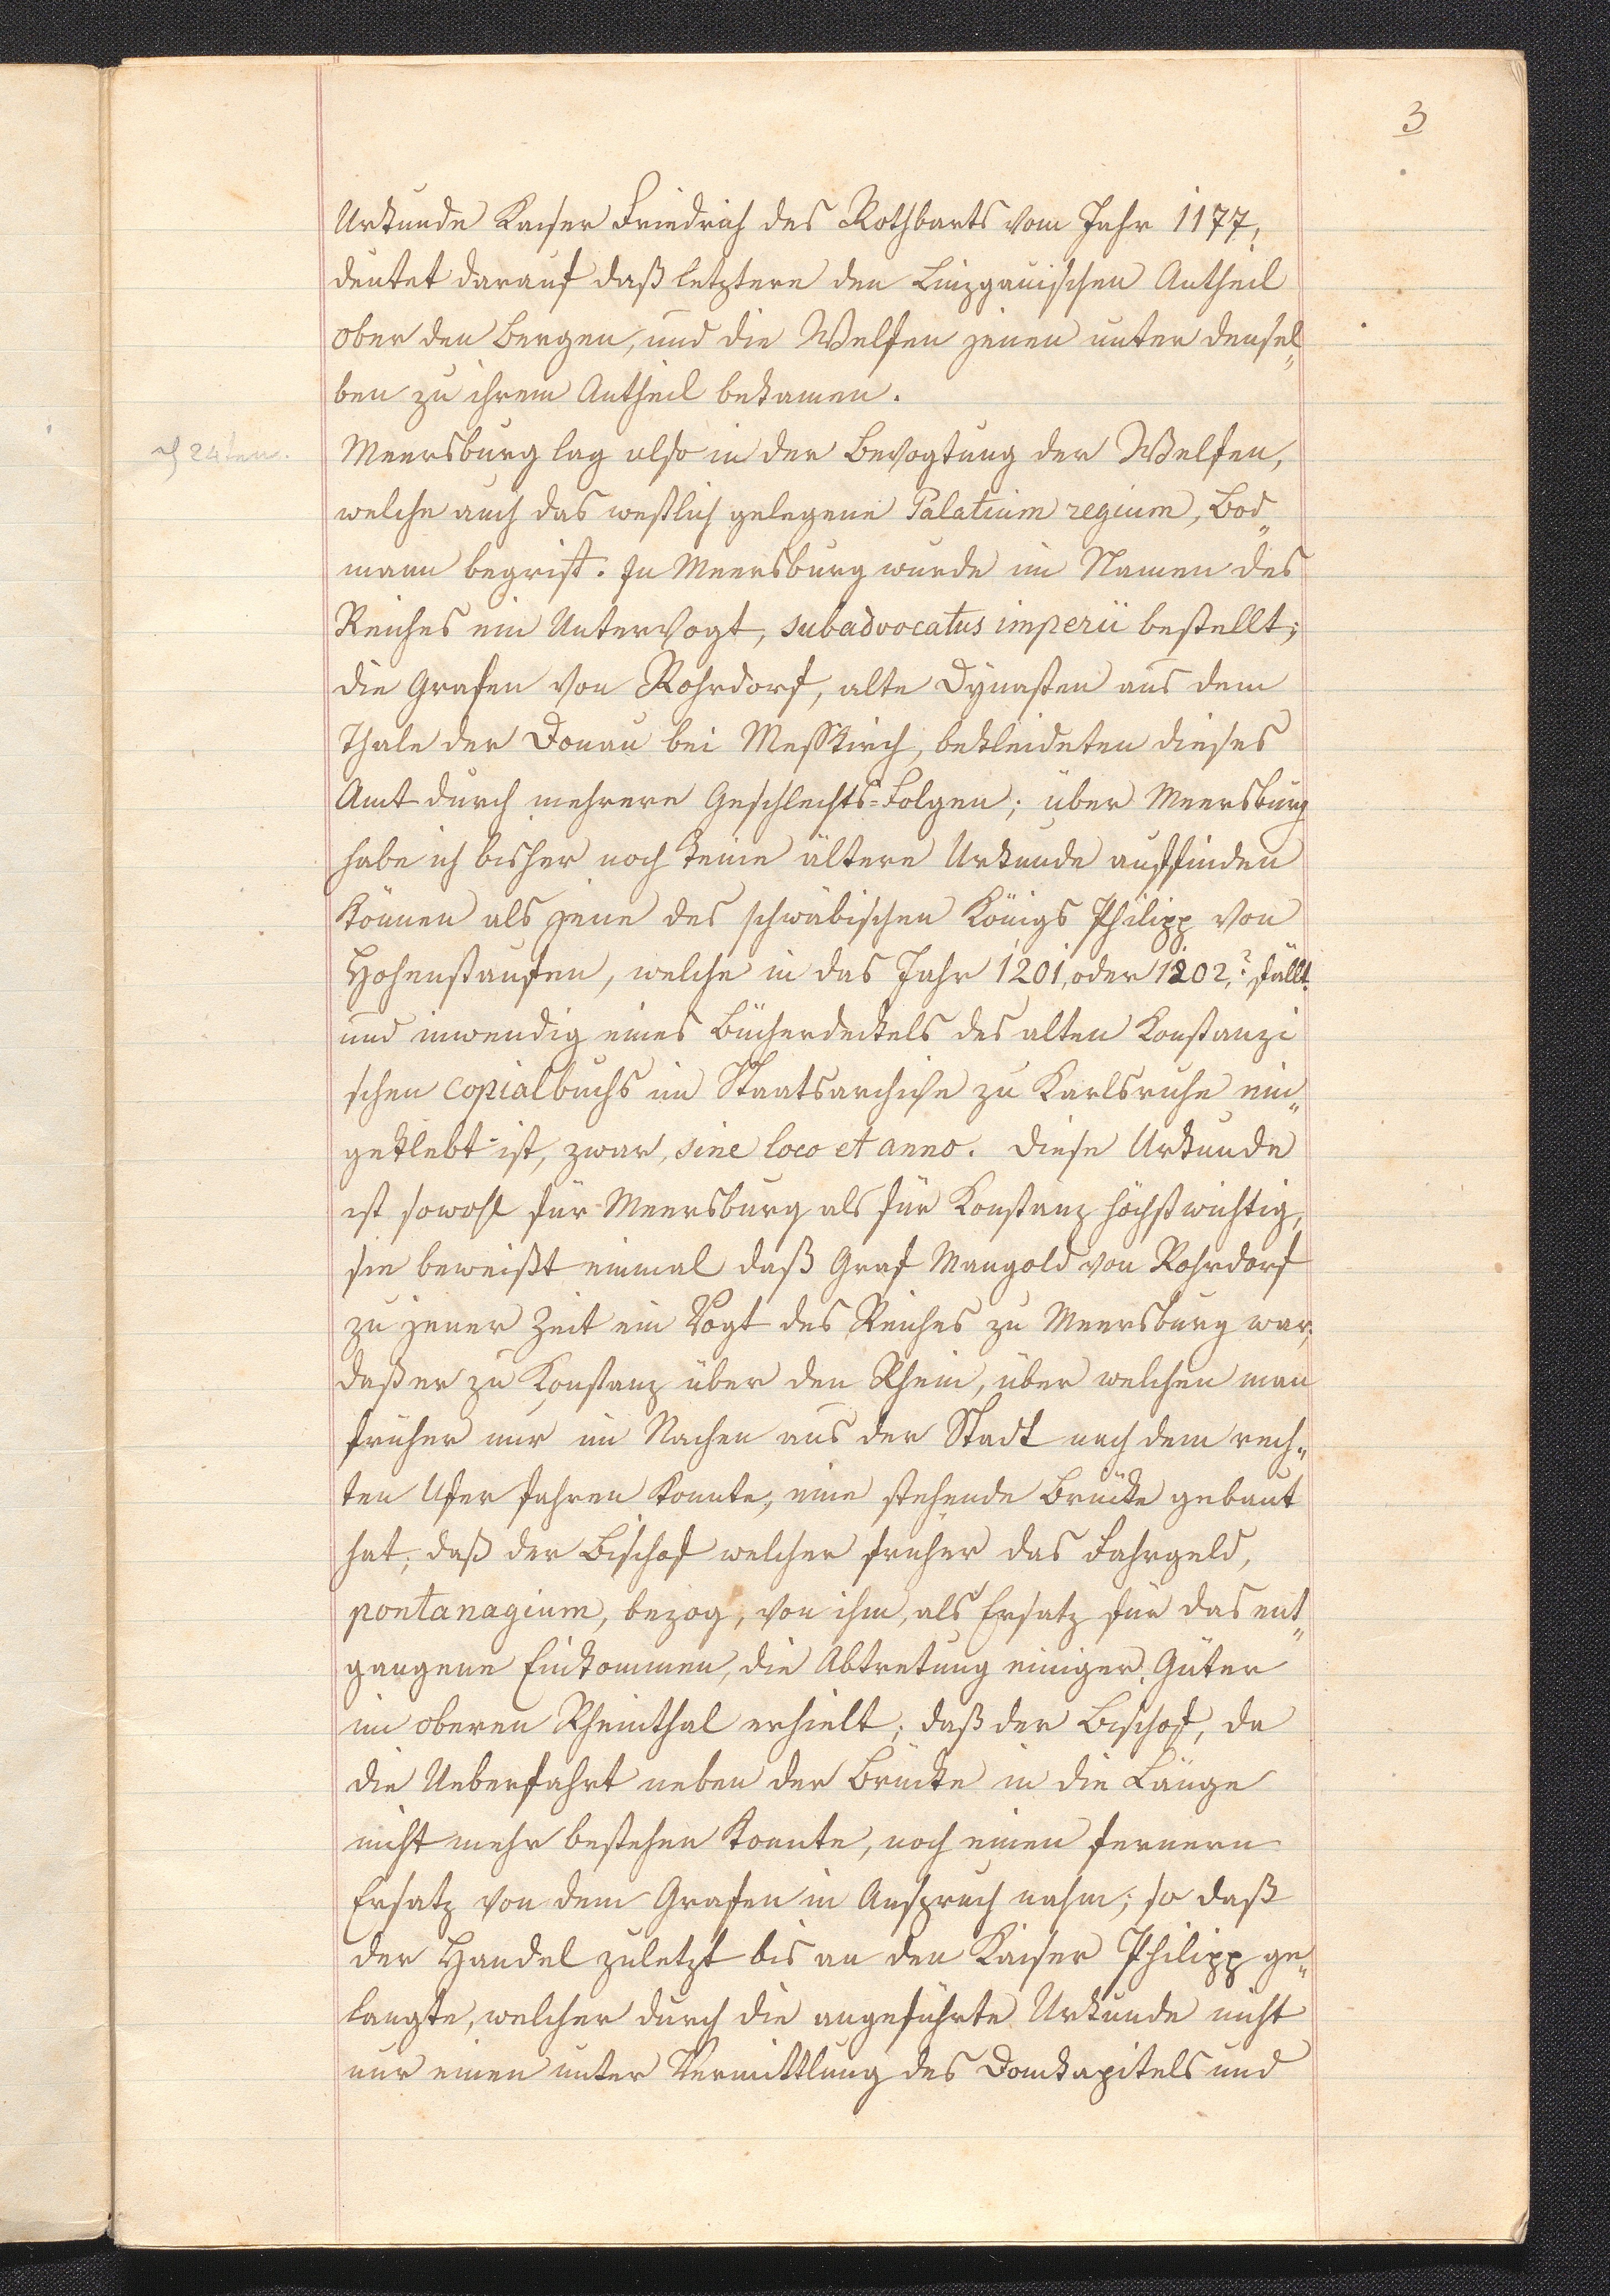 3
Urkunde Kaiser Friedrich des Rothbarts vom Jahr 1177,
deutet darauf daß letztere den Linzgauischen Antheil
ober den Bergen, und die Welfen jenen unter densel„
ben zu ihrem Antheil bekamen.
Meersburg lag also in der Bevogtung der Welfen,
welche auch das westlich gelegene Palatium regium, Bod„
mann begrift. In Meersburg wurde im Namen des
Reiches ein Untervogt, subadvocatus imperii bestellt;
die Grafen von Rohrdorf, alte Dynasten aus dem
Thale der Donau bei Messkirch, bekleideten dieses
Amt durch mehrere Geschlechts-Folgen; über Meersburg
habe ich bisher noch keine ältere Urkunde auffinden
können als jene des schwäbischen Königs Philipp von
Hohenstaufen, welche in das Jahr 1201, oder 1202,? fällt
und inwendig eines Bücherdeckels des alten Konstanzi
schen Copialbuchs im Staatsarchive zu Karlsruhe ein„
geklebt ist, zwar, sine loco et anno. Diese Urkunde
ist sowohl für Meersburg als für Konstanz höchst wichtig,
sie beweißt einmal daß Graf Mangold von Rohrdorf
zu jener Zeit ein Vogt des Reiches zu Meersburg war;
daß er zu Konstanz über den Rhein, über welchen man
früher nur im Nachen aus der Stadt nach dem rech„
ten Ufer fahren konnte, eine stehende Brücke gebaut
hat; daß der Bischof welcher früher das Fahrgeld,
pontanagium, bezog, von ihm, als Ersatz für das ent„
gangene Einkommen, die Abtretung einiger Güter
im oberen Rheinthal erhielt; daß der Bischof, da
die Ueberfahrt neben der Brücke in die Länge
nicht mehr bestehen konnte, noch einen fernern
Ersatz von dem Grafen in Anspruch nahm; so daß
der Handel zuletzt bis an den Kaiser Philipp ge„
langte, welcher durch die angeführte Urkunde nicht
nur einen unter Vermittlung des Domkapitels und